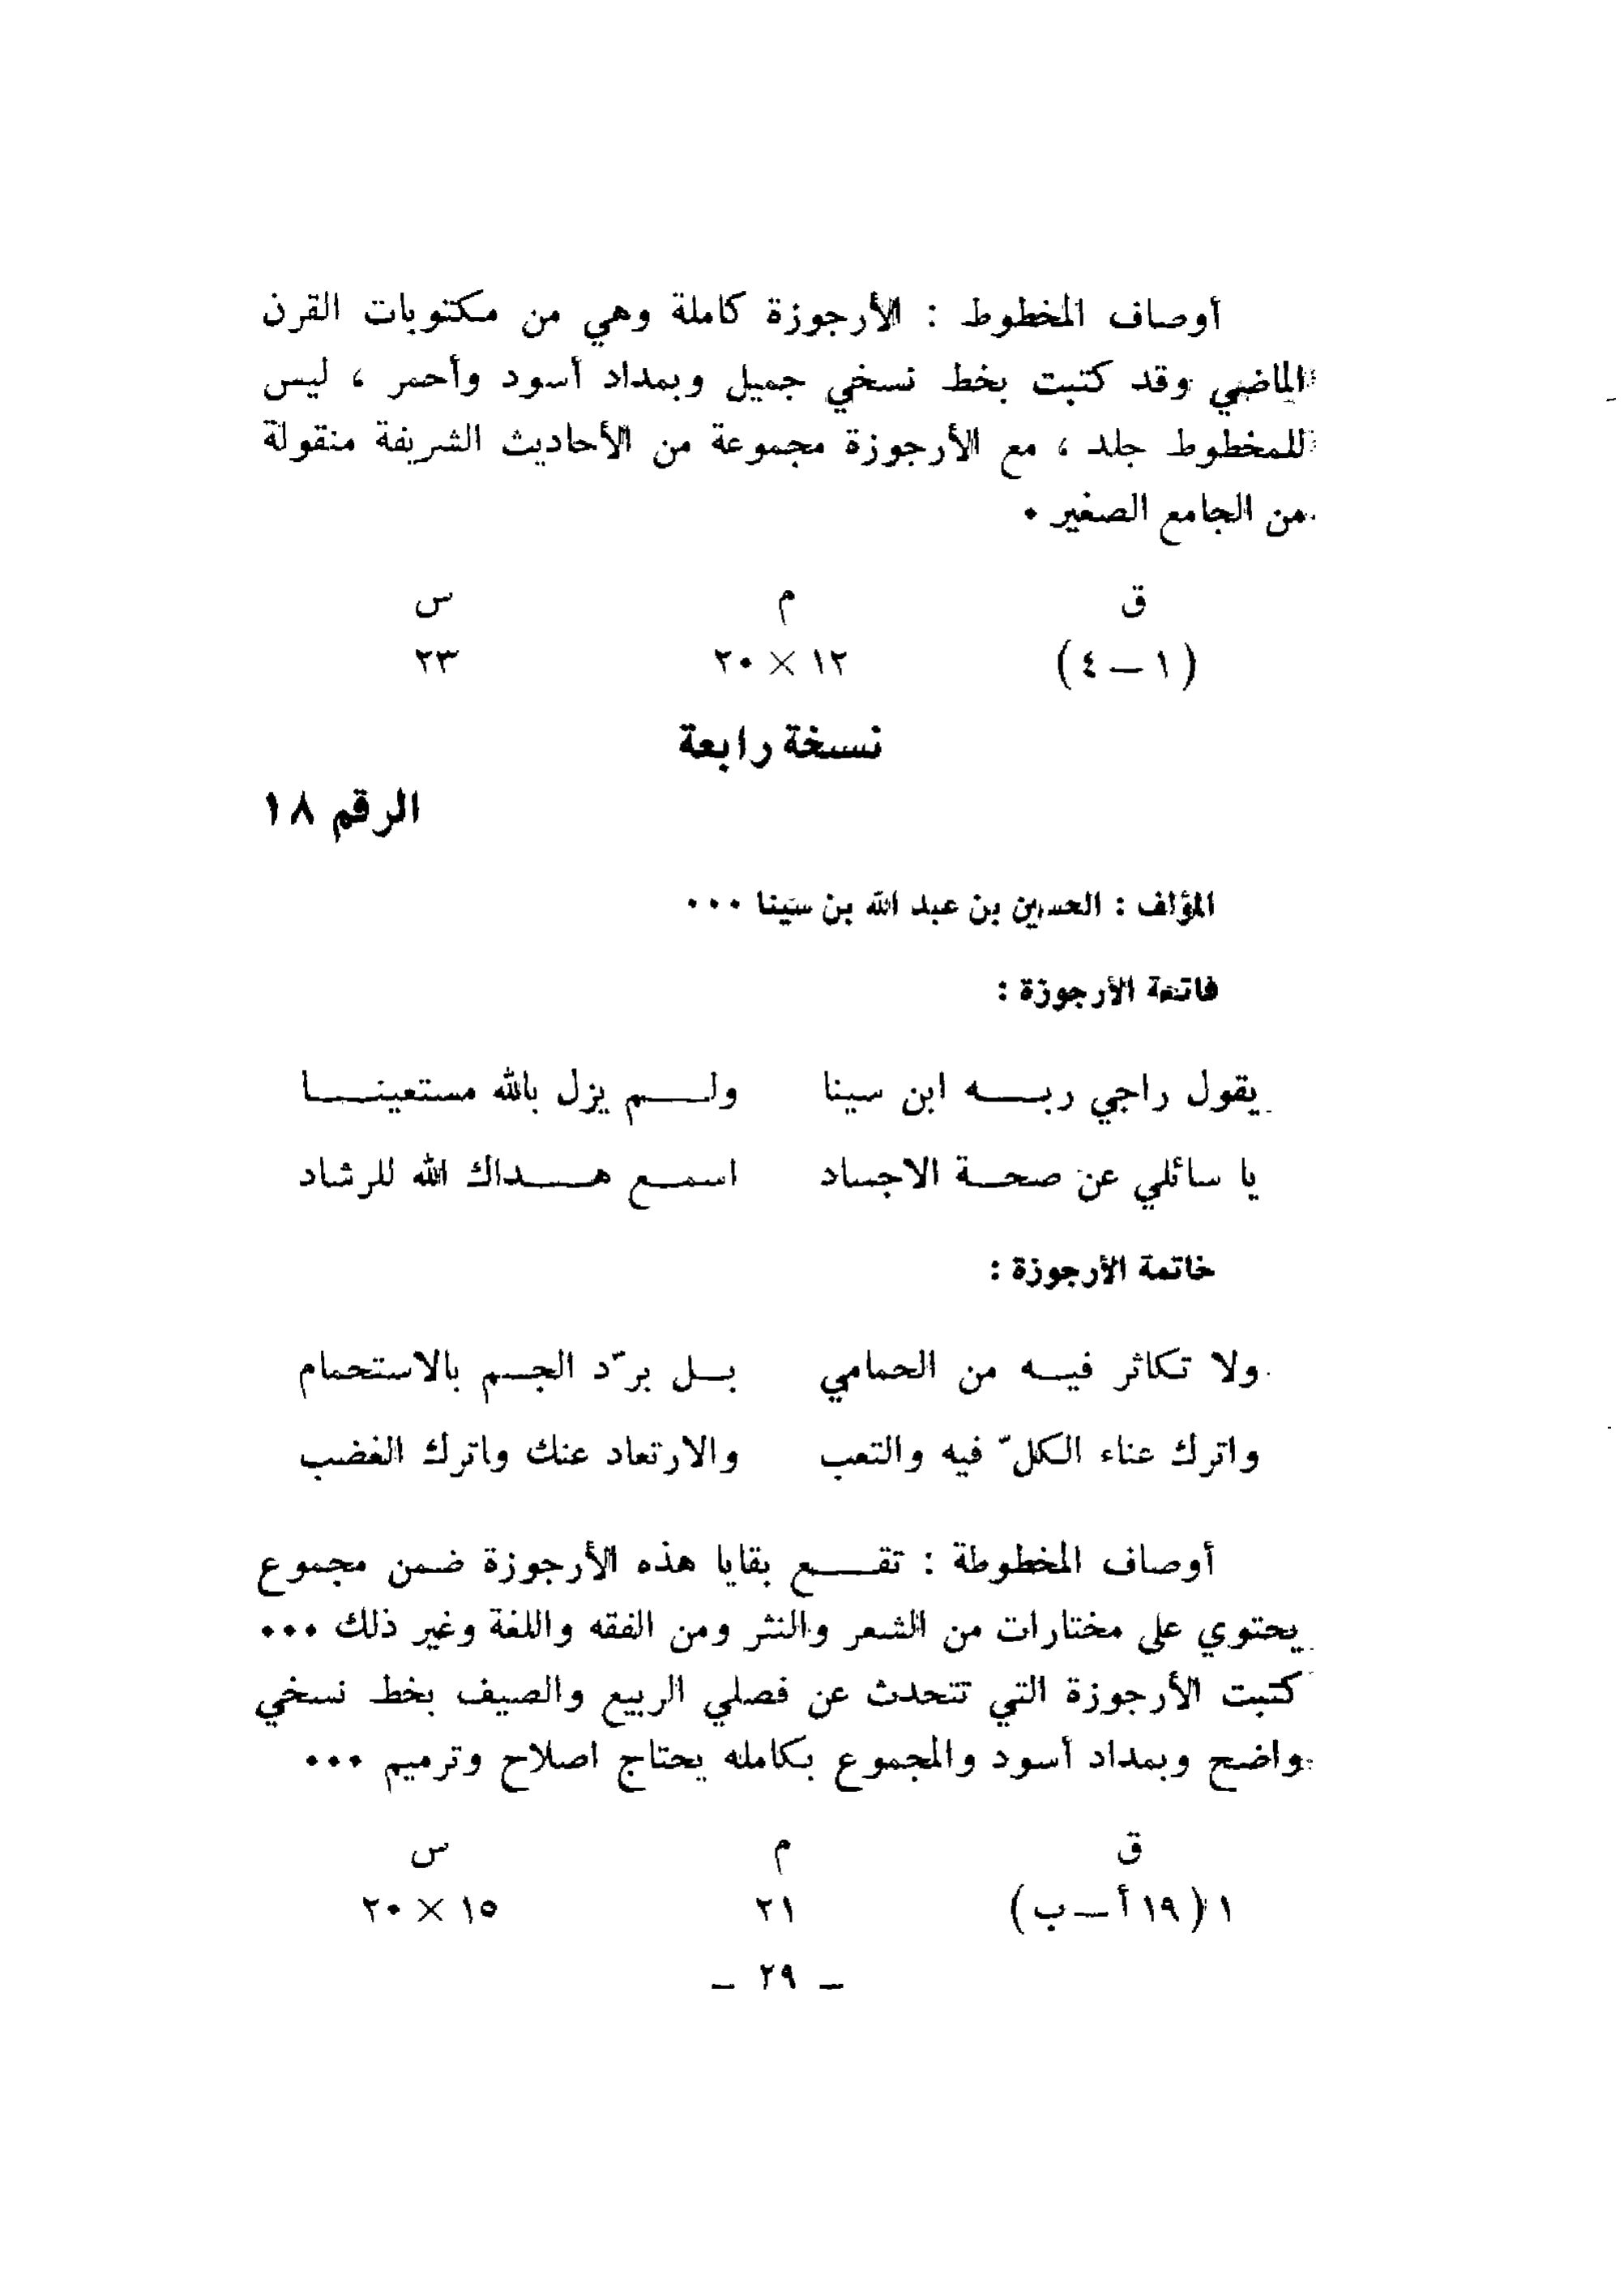 أوصاف المخطوط : الأرجوزة كاملة وهي من مكتوبات القرن
الماضي وقد كتبت بخط نسخي جميل وبمداد أسود وأحمر ، ليس
للمخطوط جلد ، مع الأرجوزة مجموعة من الأحاديث الشريفة منقولة
من الجامع الصغير ٠
ق م س
(١ – ٤) ١٢ × ٢٠ ٢٣
نسخة رابعة
الرقم ١٨
المؤلف : الحسين بن عبد الله بن سينا ٠٠٠
فاتحة الأرجوزة :
يقول راجي ربـــه ابن سينا ولـــم يزل بالله مستعينـــا
يا سائلي عن صحـة الاجساد اسمـع هـــداك الله للرشاد
خاتمة الأرجوزة :
ولا تكاثر فيـه من الحمامي بـل برّد الجسـم بالاستحمام
واترك عناء الكلّ فيه والتعب والارتعاد عنك واترك الغضب
أوصاف المخطوطة : تقـــع بقايا هذه الأرجوزة ضمن مجموع
يحتوي على مختارات من الشعر والنثر ومن الفقه واللغة وغير ذلك ٠٠٠
كتبت الأرجوزة التي تتحدث عن فصلي الربيع والصيف بخط نسخي
واضح وبمداد أسود والمجموع بكامله يحتاج اصلاح وترميم ٠٠٠
ق م س
١ (١٩ أ – ب) ٢١ ١٥ × ٢٠
– ٢٩ –